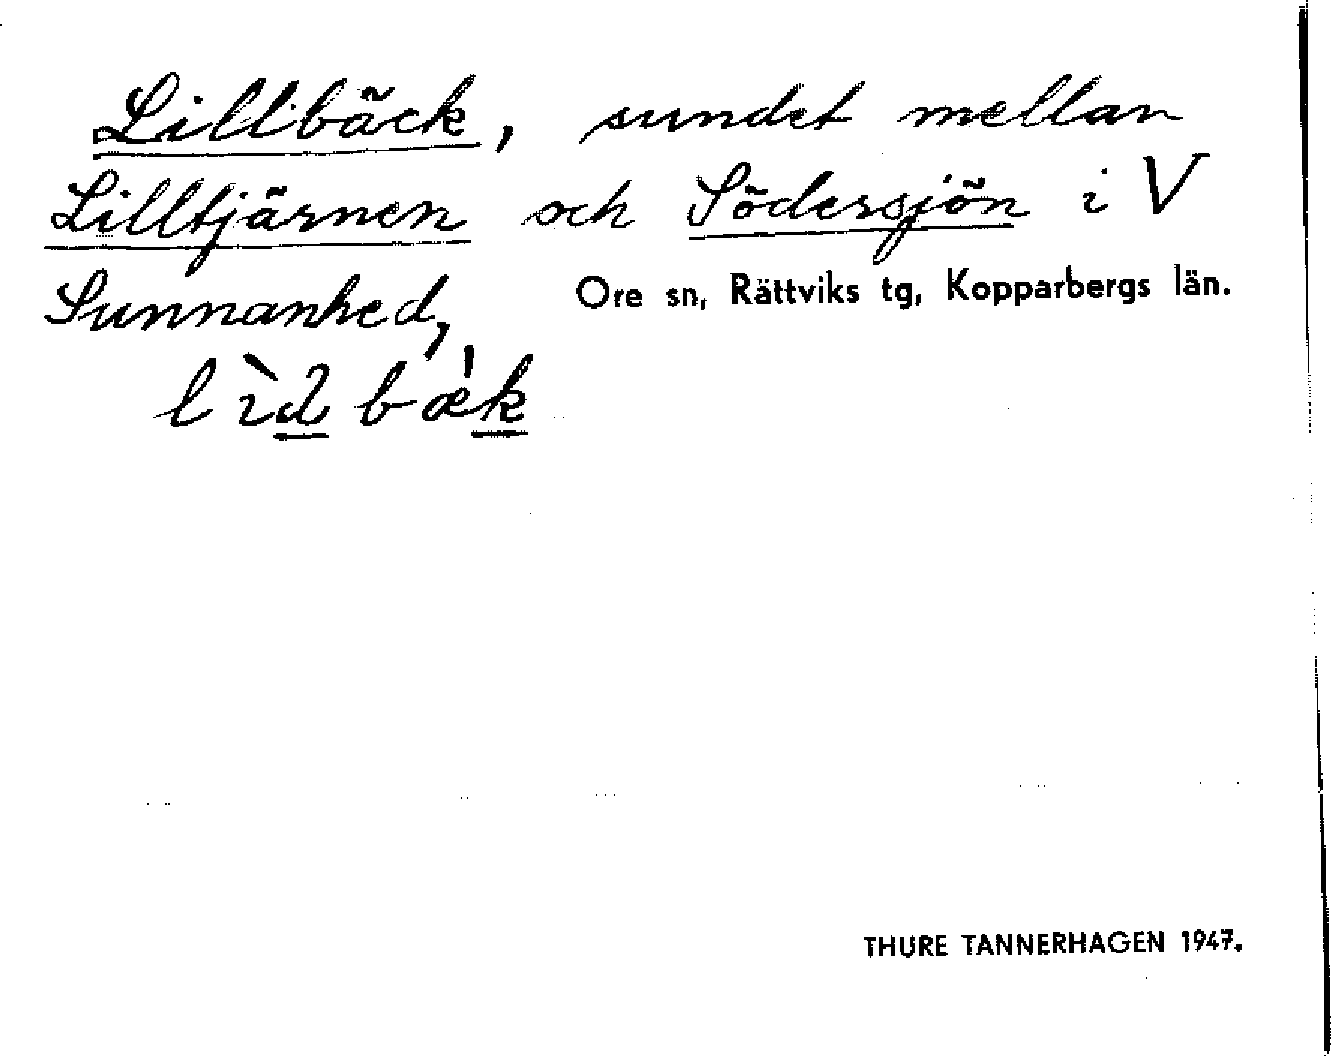 Lillbäck, sundet mellan
Lilltjärnen och Södersjön i V
Sunnanhed, Ore sn, Rättviks tg, Kopparbergs län.
lìd bæ̀k
THURE TANNERHAGEN 1947.